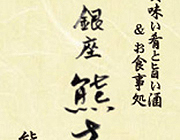 味い肴と旨い酒
＆お食事処
銀座
熊